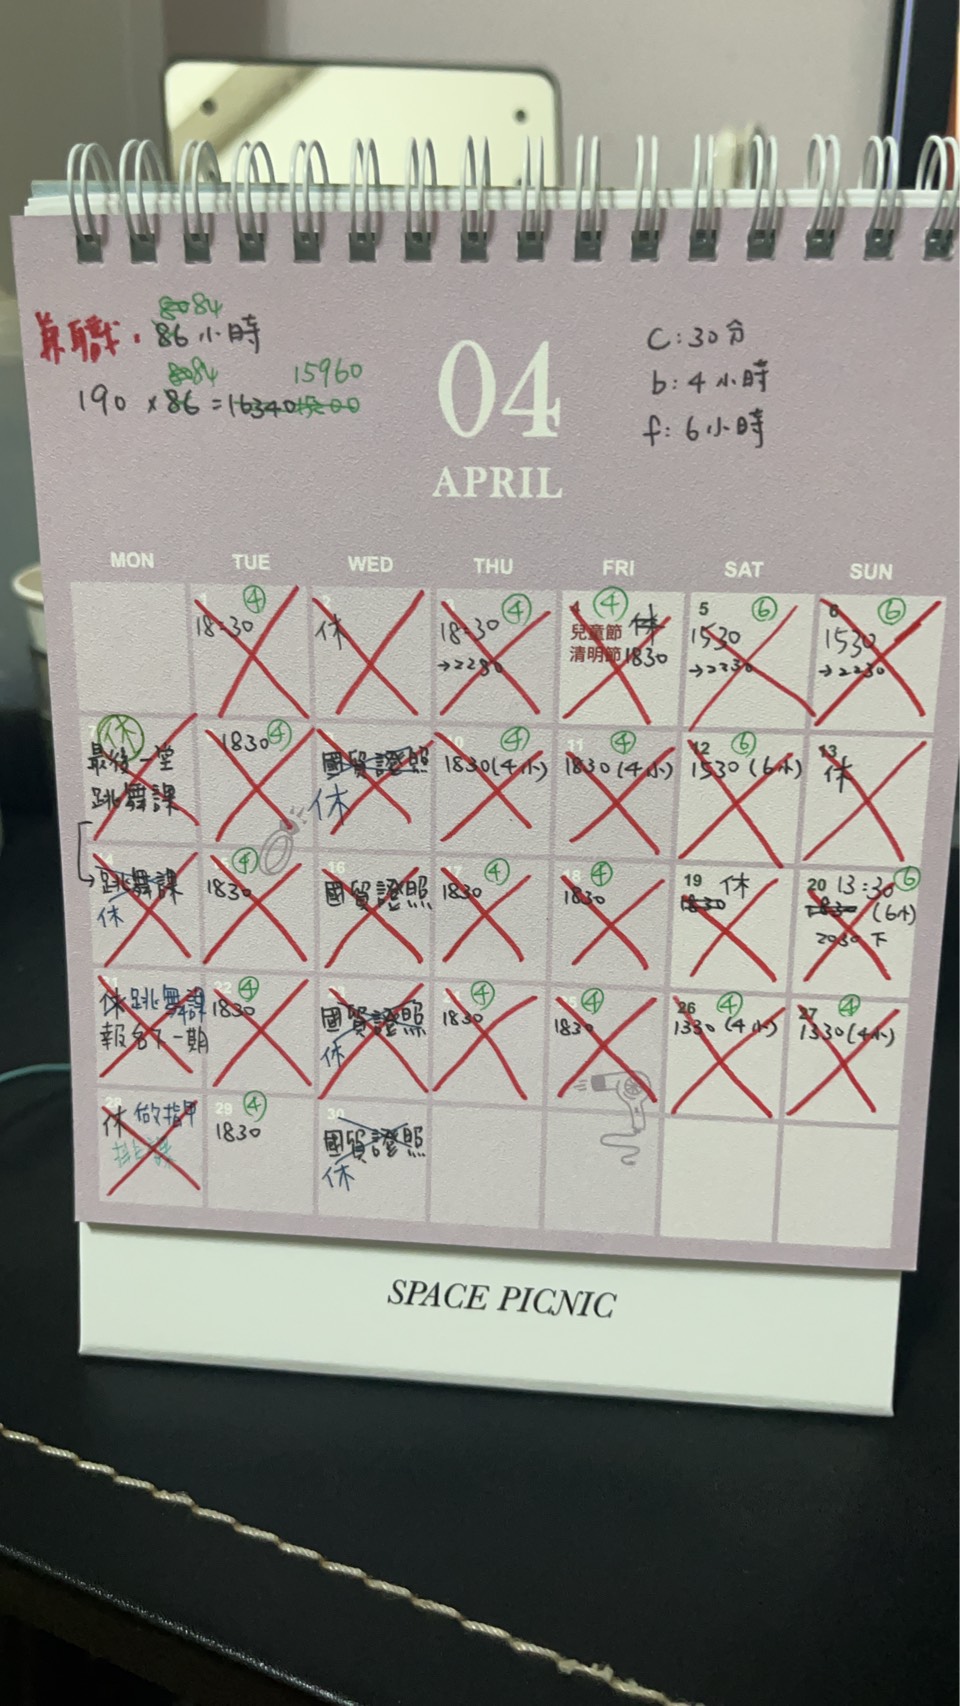 84
兼職：86小時
84 15960
190 × 86 = 16340 15200
04
APRIL
C:30分
b:4小時
f:6小時
MON TUE WED THU FRI SAT SUN
1 ④
18:30
2
休
3 ④
18:30
→2230
4 ④ 休
兒童節
清明節 1830
5 ⑥
1530
→2230
6 ⑥
1530
→2230
7 休
最後一堂
跳舞課
④
1830
國貿證照
休
10 ④
1830(4小)
11 ④
1830(4小)
12 ⑥
1530(6小)
13
休
14
跳舞課
休
15 ④
1830
16
國貿證照
17 ④
1830
18 ④
1830
19 休
1830
20 13:30 ⑥
1830 (6小)
2030下
21
休 跳舞課
報名下一期
22 ④
1830
23
國貿證照
休
24 ④
1830
25 ④
1830
26 ④
1330(4小)
27 ④
1330(4小)
28
休 做指甲
29 ④
1830
30
國貿證照
休
SPACE PICNIC